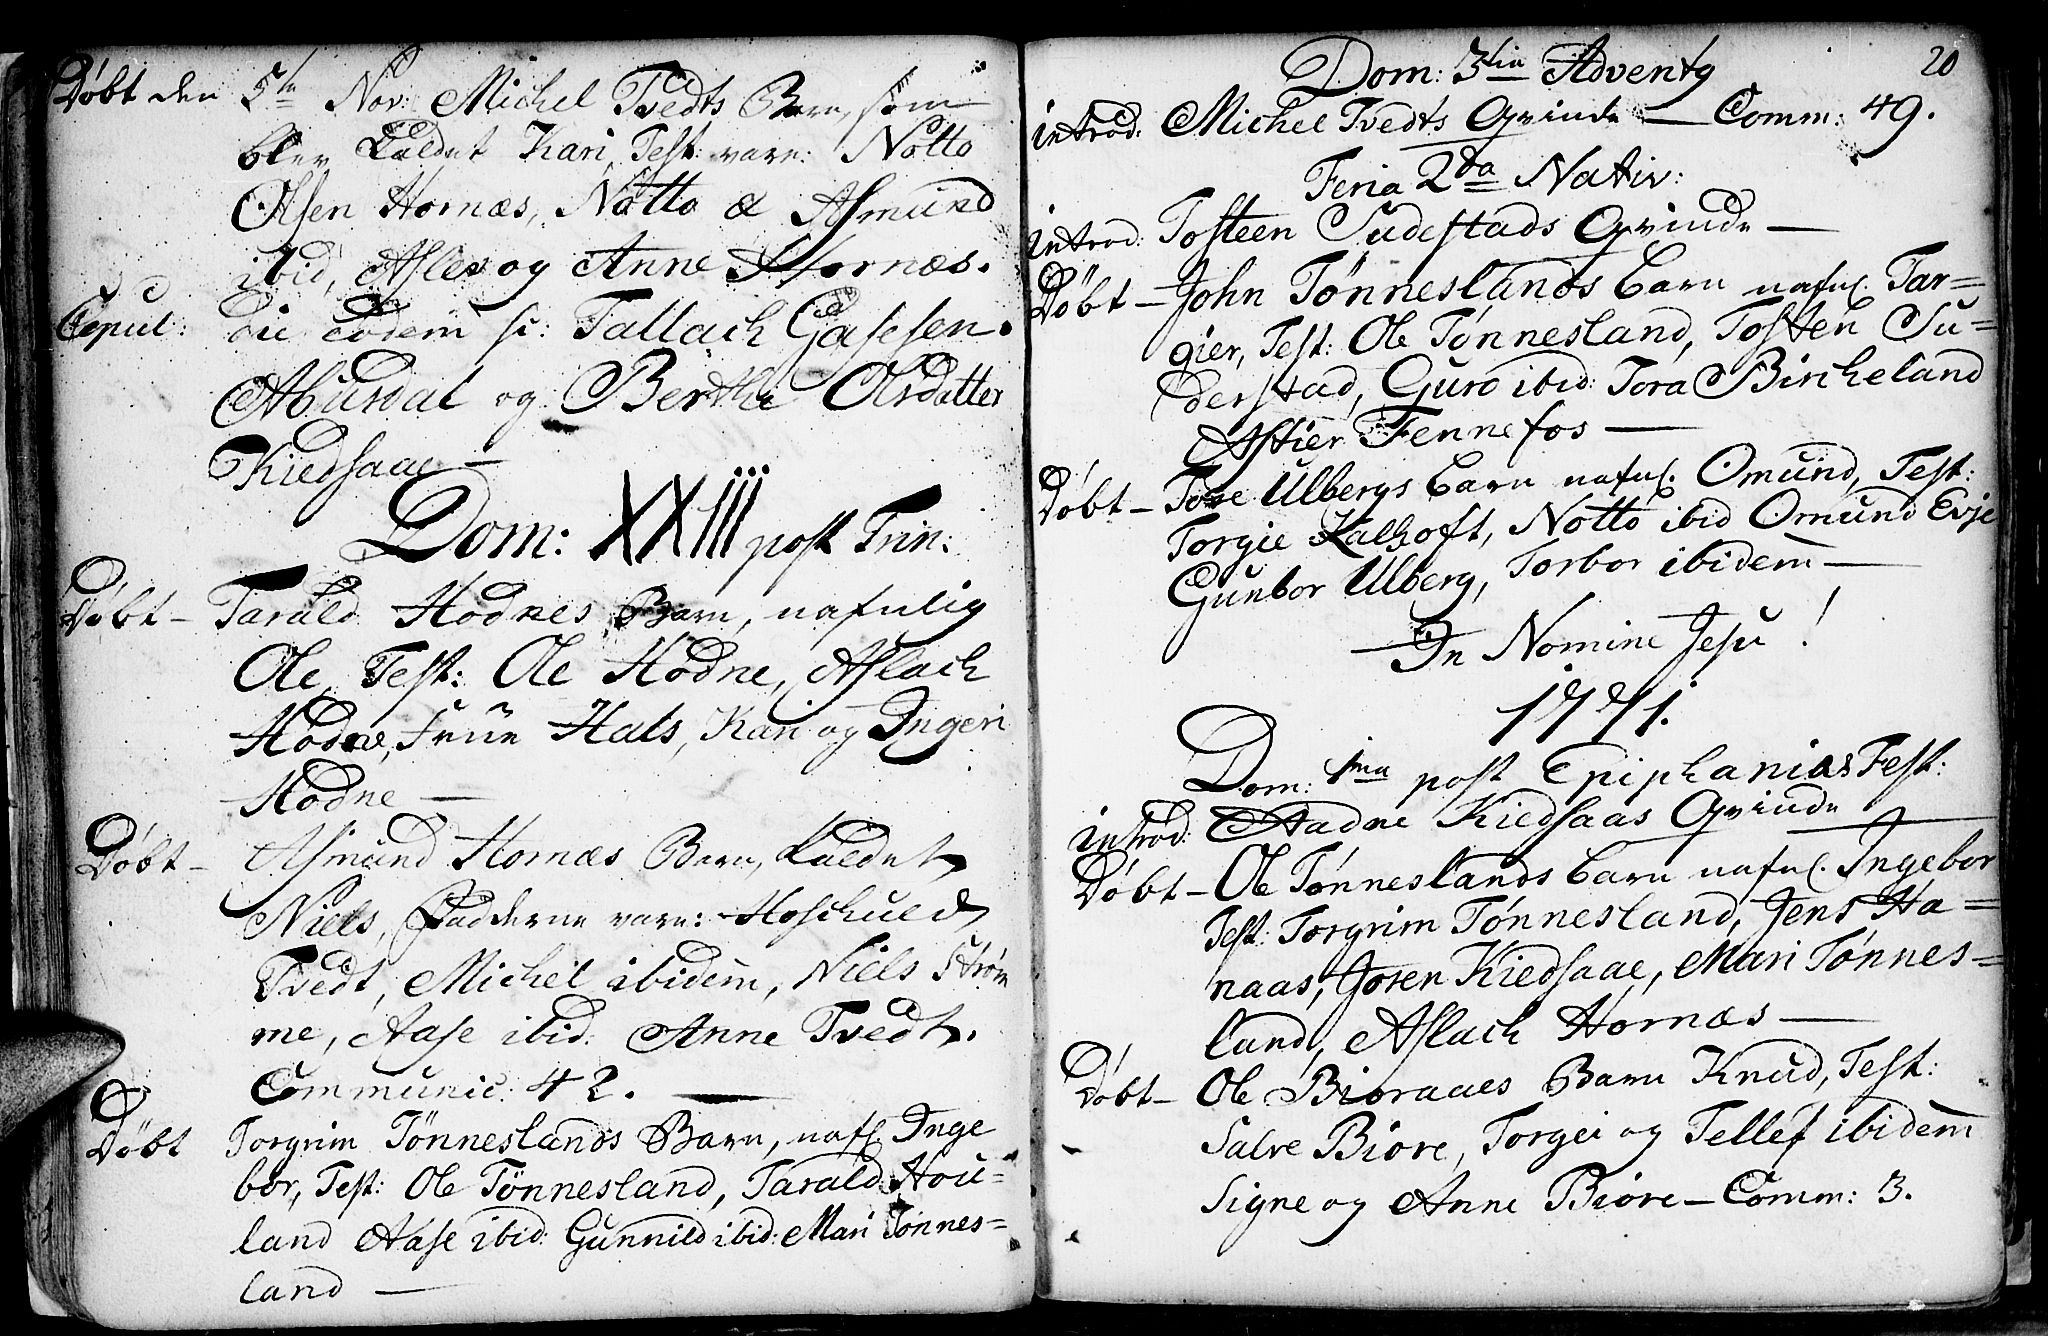 Døbt den 5te Nov: Michel Tvedts Barn, som
blev Kaldet Kari, Test: vare: Notto
Olsen Hornæs, Notto & Asmund
ibid, Asler og Anne Hornæs.
Copul: Die eodem sc: Tallach Gasesen
Abusdal og Berthe Olsdatter
Kiedsaae —
Dom: XXIII post Trin:
Døbt — Tarald Hodnes Barn, nafnlig
Ole, Test: Ole Hodne, Aslach
Hodne, Hals, Kari og Ingeri
Hodne —
Døbt — Asmund Hornæs Barn, Kaldet
Niels, Fadderne vare: Hoschuld
Tvedt, Michel ibidem, Niels Strøm
me, Aase ibid: Anne Tvedt.
Communic: 42. —
Døbt Torgrim Tönneslands Barn, nafl Inge
bor, Test: Ole Tönnesland, Tarald Hou=
land Aase ibid: Gunnild ibid: Mari Tønnes=
land —
20
Dom: 3tia Advent9
introd: Michel Tvedts Qvinde — Comm: 49.
Feria 2da Nativ:
introd: Tosteen Sudestads Qvinde —
Døbt — John Tönneslands barn nafnl. Tar=
gier, Test: Ole Tønnesland, Tosten Su=
derstad, Guro ibid: Tora Bircheland
Astier Fennefos —
Døbt — Tore Ulbergs barn nafnl. Omund, Test:
Torgie Kalhoft, Notto ibid Omund Evje
Gunbor Ulberg, Torbor ibidem —
In Nomine Jesu!
1771.
Dom: 1ma post Epiphanias Fest:
introd: Aadne Kiedsaas Qvinde —
Døbt — Ole Tønneslands barn nafnl. Ingebor
Test: Torgrim Tønnesland, Jens Ha=
naas, Joren Kiedsaae, Mari Tønnes=
land, Aslach Hornæs —
Døbt — Ole Bioraaes Barn Knud, Test:
Salve Biore, Torgei og Tellef ibidem
Signe og Anne Biøre — Comm: 3.